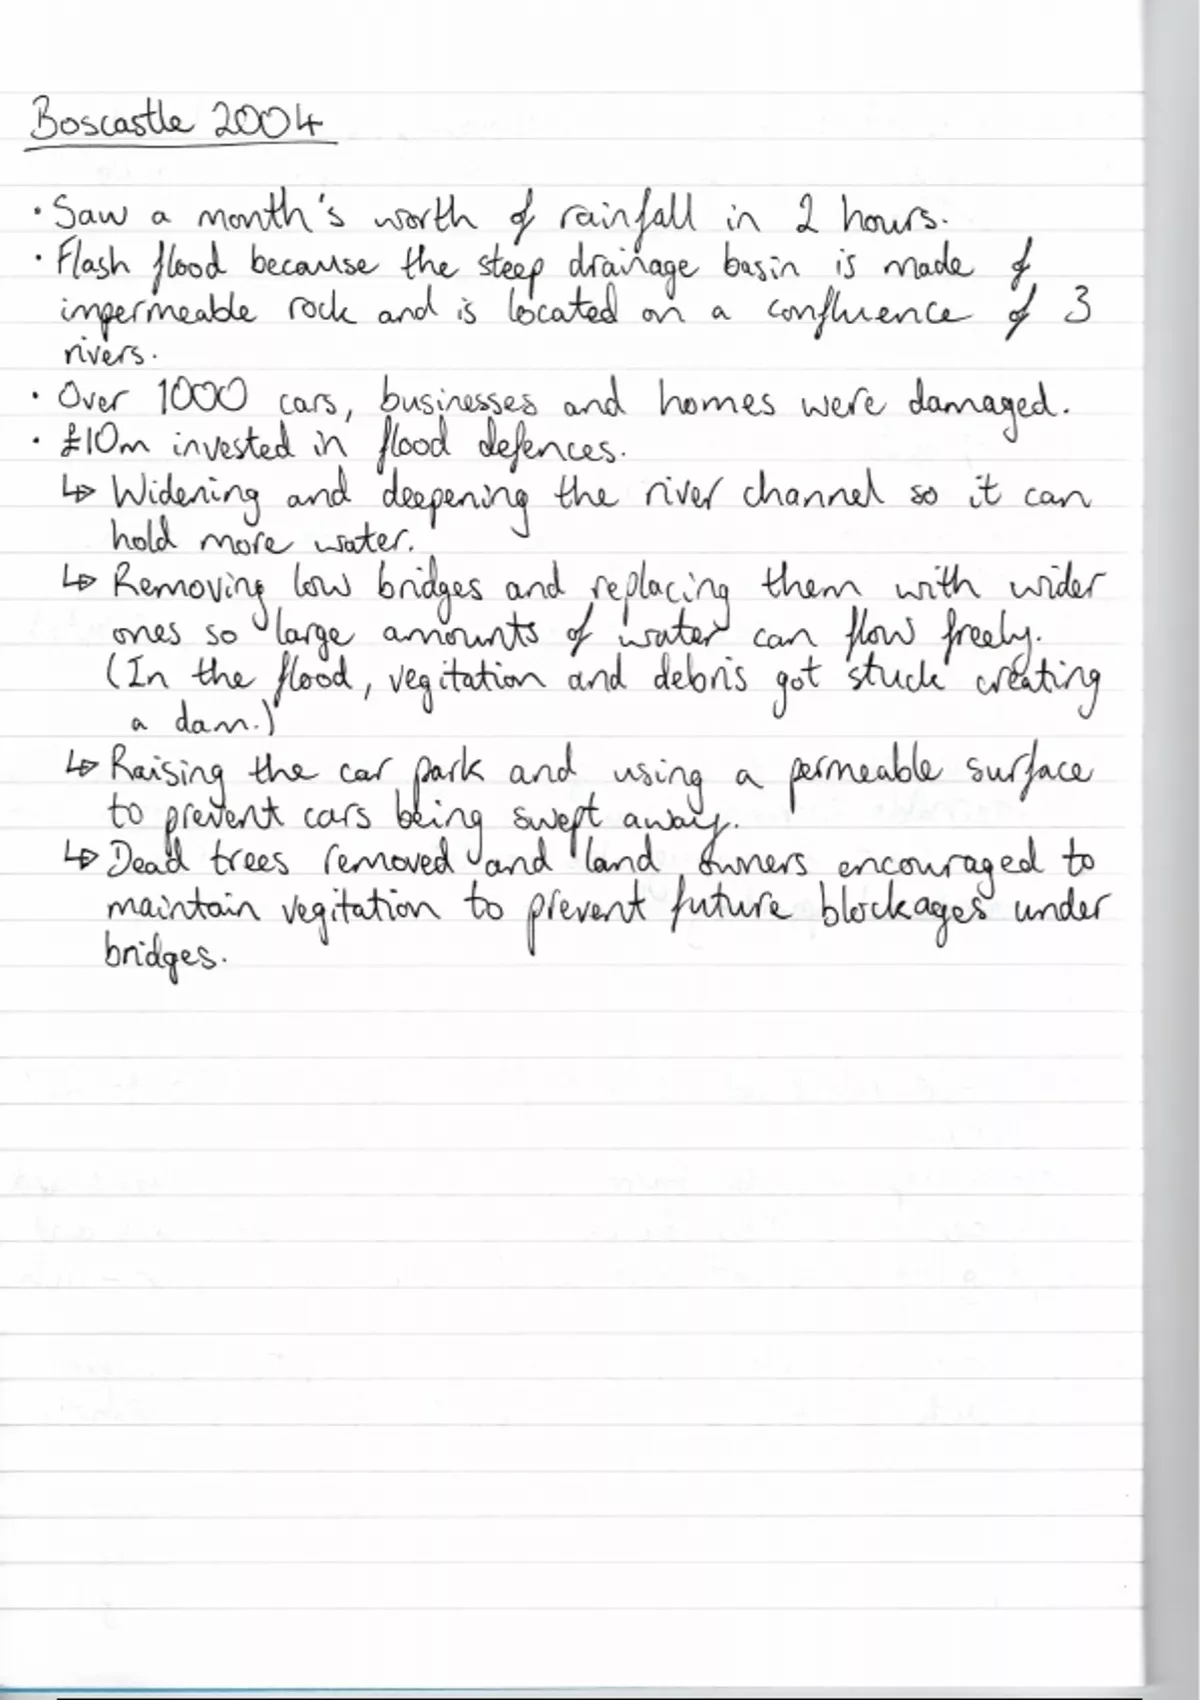 Boscastle 2004
· Saw a month's worth of rainfall in 2 hours.
· Flash flood because the steep drainage basin is made of
impermeable rock and is located on a confluence of 3
rivers.
· Over 1000 cars, businesses and homes were damaged.
· £10m invested in flood defences.
↳ Widening and deepening the river channel so it can
hold more water.
↳ Removing low bridges and replacing them with wider
ones so large amounts of water can flow freely.
(In the flood, vegitation and debris got stuck creating
a dam.)
↳ Raising the car park and using a permeable surface
to prevent cars being swept away.
↳ Dead trees removed and land owners encouraged to
maintain vegitation to prevent future blockages under
bridges.